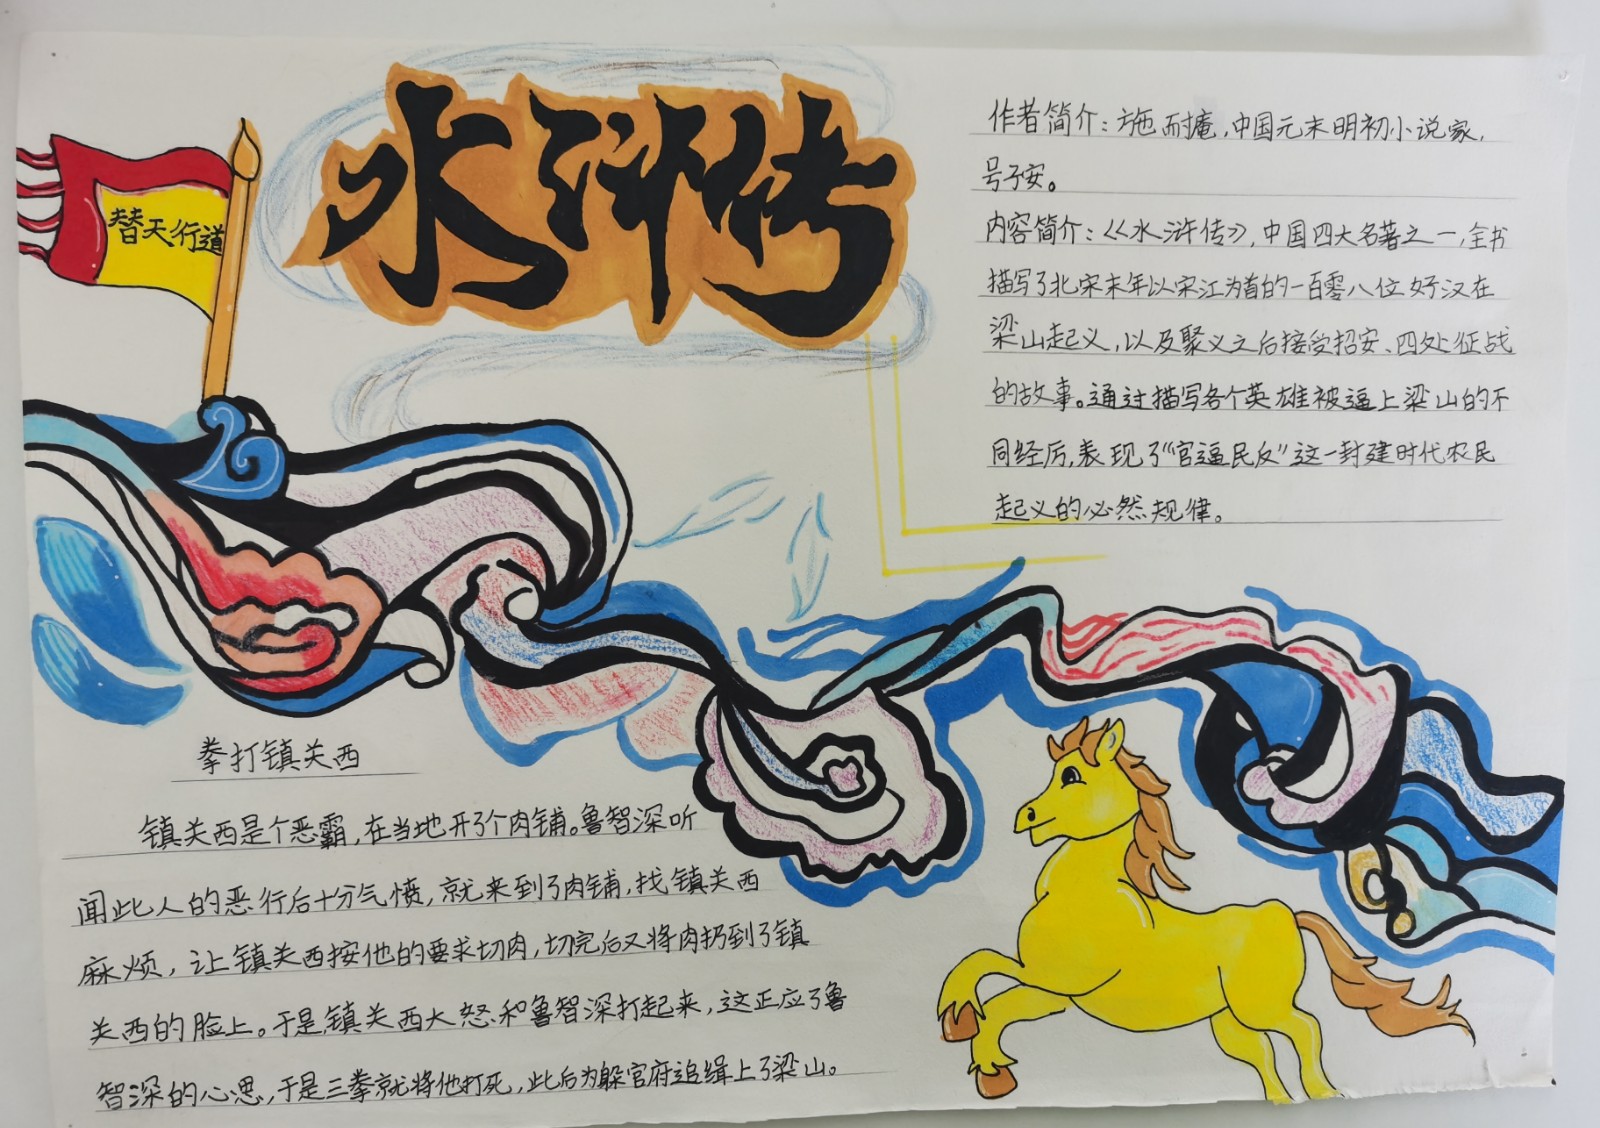 水浒传
替天行道
作者简介：施耐庵，中国元末明初小说家，
号子安。
内容简介：《水浒传》，中国四大名著之一，全书
描写了北宋末年以宋江为首的一百零八位好汉在
梁山起义，以及聚义之后接受招安、四处征战
的故事。通过描写各个英雄被逼上梁山的不
同经历，表现了“官逼民反”这一封建时代农民
起义的必然规律。
拳打镇关西
镇关西是个恶霸，在当地开了个肉铺。鲁智深听
闻此人的恶行后十分气愤，就来到了肉铺，找镇关西
麻烦，让镇关西按他的要求切肉，切完后又将肉扔到了镇
关西的脸上。于是镇关西大怒和鲁智深打起来，这正应了鲁
智深的心思，于是三拳就将他打死，此后为躲官府追缉上了梁山。